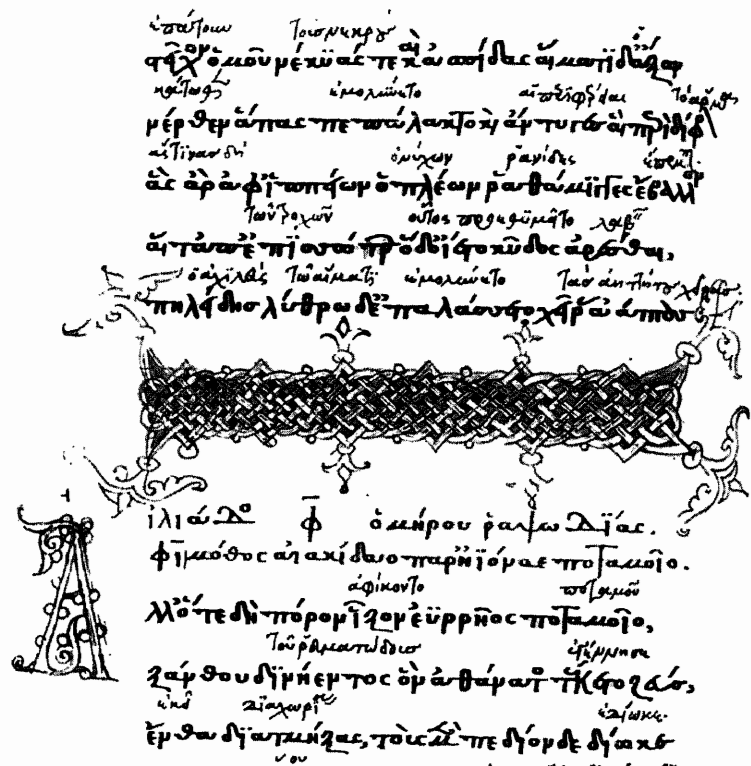 ἐπάτουν τοὺς νεκρούς
στεῖβον ὁμοῦ νέκυάς τε καὶ ἀσπίδας αἵματι δ' ἄξων
κάτωθεν ἐμολύνετο
νέρθεν ἅπας πεπάλακτο καὶ ἄντυγες αἳ περὶ δίφρον
ἅστινας δὴ ὀνύχων ῥανίδες
ἃς ἄρ' ἀφ' ἱππείων ὁπλέων ῥαθάμιγγες ἔβαλλον
τῶν τροχῶν οὗτος προεθυμεῖτο λαβεῖν
αἵ τ' ἀπ' ἐπισσώτρων ὁ δὲ ἵετο κῦδος ἀρέσθαι,
ὁ ἀχιλλεὺς τῶ αἵματι ἐμολύνετο
πηλείδης λύθρω δὲ παλάσσετο χεῖρας ἀάπτους
ἰλιάδος φ ὁμήρου ῥαψωδίας.
φῖ μόθος αἰακίδαο παρ' ἠϊόνας ποταμοῖο.
ἀφίκοντο ποταμοῦ
Ἀλλ' ὅτε δὴ πόρον ἷξον ἐϋρρῆος ποταμοῖο,
τοῦ ῥευματώδους ἐγέννησε
ξάνθου δινήεντος ὃν ἀθάνατος τέκετο ζεύς,
ἐκεῖ διαχωρίσας ἐδίωκε
ἔνθα διατμήξας, τοὺς μὲν πεδίονδε δίωκε